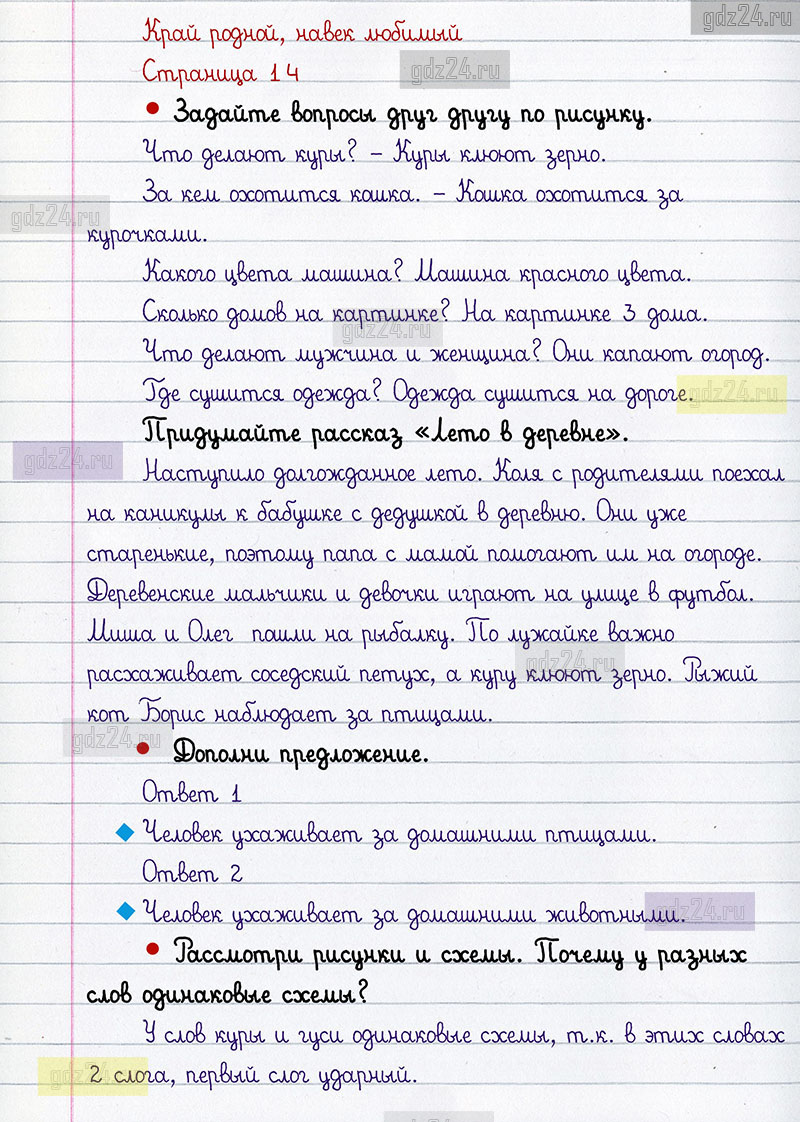 gdz24.ru
Край родной, навек любимый
Страница 14
gdz24.ru
• Задайте вопросы друг другу по рисунку.
Что делают куры? – Куры клюют зерно.
За кем охотится кошка. – Кошка охотится за
gdz24.ru
курочками.
Какого цвета машина? Машина красного цвета.
Сколько домов на картинке? На картинке 3 дома.
gdz24.ru
Что делают мужчина и женщина? Они капают огород.
Где сушится одежда? Одежда сушится на дороге.
gdz24.ru
Придумайте рассказ «Лето в деревне».
gdz24.ru
Наступило долгожданное лето. Коля с родителями поехал
на каникулы к бабушке с дедушкой в деревню. Они уже
старенькие, поэтому папа с мамой помогают им на огороде.
Деревенские мальчики и девочки играют на улице в футбол.
Миша и Олег пашли на рыбалку. По лужайке важно
gdz24.ru
расхаживает соседский петух, а куру клюют зерно. Рыжий
кот Борис наблюдает за птицами.
gdz24.ru
• Дополни предложение.
Ответ 1
Человек ухаживает за домашними птицами.
Ответ 2
Человек ухаживает за домашними животными.
gdz24.ru
• Рассмотри рисунки и схемы. Почему у разных
слов одинаковые схемы?
У слов куры и гуси одинаковые схемы, т.к. в этих словах
2 слога, первый слог ударный.
gdz24.ru